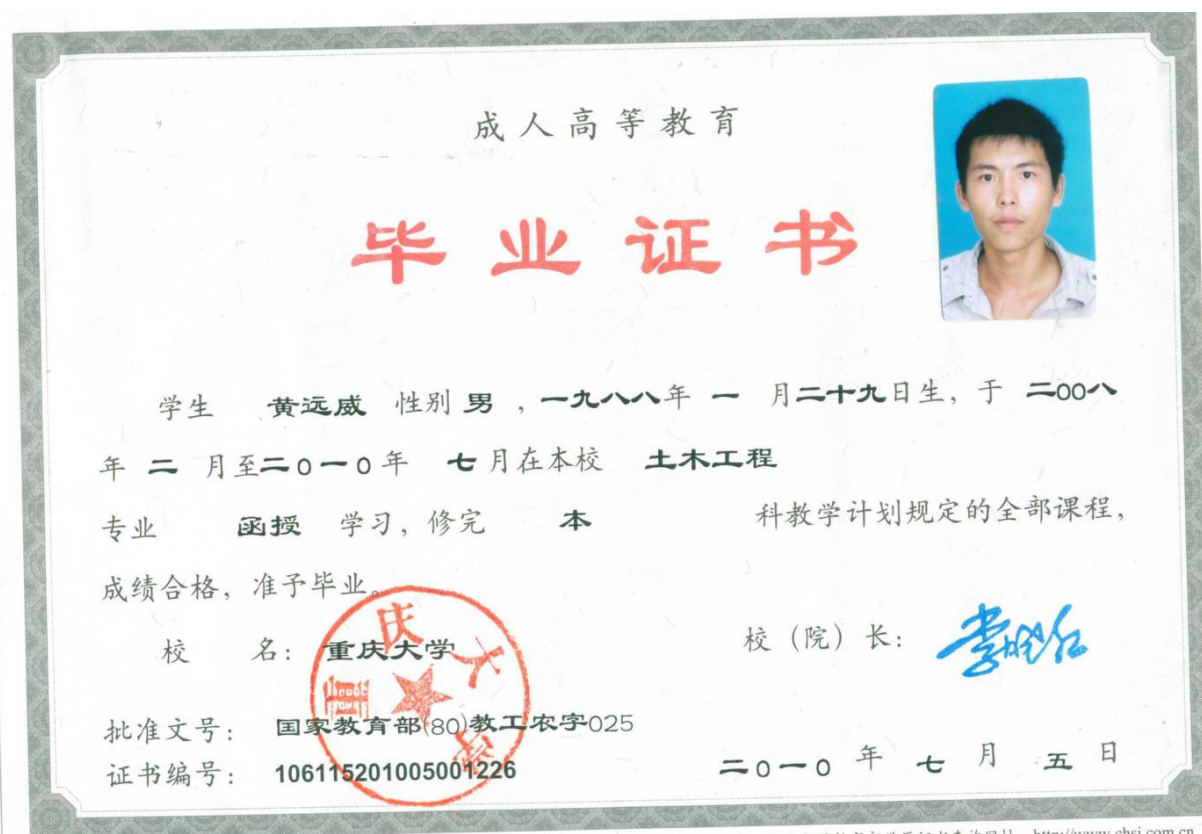 成人高等教育
毕业证书
学生 黄远威 性别 男 ,一九八八年 一 月二十九日生, 于 二00八
年 二 月至二0一0年 七月在本校 土木工程
专业 函授 学习, 修完 本 科教学计划规定的全部课程,
成绩合格, 准予毕业。
校 名: 重庆大学 校(院)长: 李晓红
重庆大学
批准文号: 国家教育部(80)教工农字025
证书编号: 106115201005001226
二0一0 年 七 月 五 日
http://www.chsi.com.cn